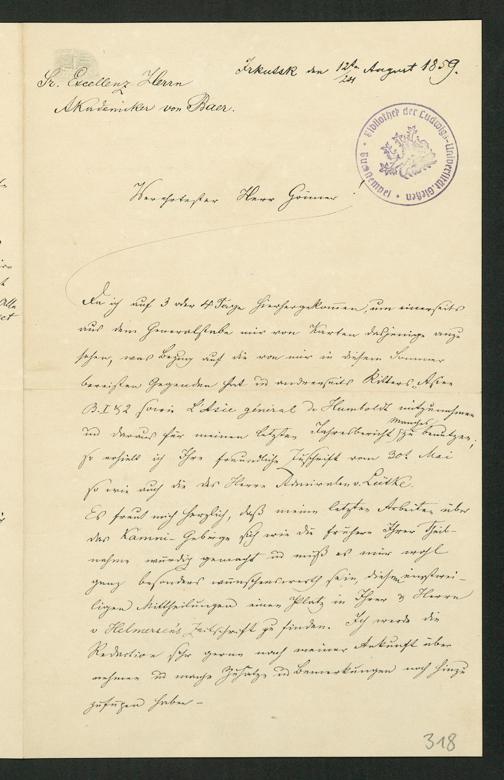 Irkutsk den 12te/24 August 1859.
Sr. Excellenz Herrn
Akademiker von Baer.
Bibliothek der Ludwigs-Universität Gießen
Verehrtester Herr Gönner!
Da ich auf 3 oder 4 Tage hierhergekommen, um einerseits
aus dem Generalstabe mir von Karten dasjenige anzu
sehen, was Bezug auf die von mir in diesem Sommer
bereisten Gegenden hat und andrerseits Ritters Asien
B. I & 2 sowie L'Asie général de Humboldt mitzunehmen
und daraus für meinen letzten Jahresbericht Manches zu benutzen,
so erhielt ich Ihre freundliche Zuschrift vom 30t. Mai
so wie auch die des Herrn Admiralen v. Lütke.
Es freut mich herzlich, daß meine letzten Arbeiten über
das Kamni-Gebirge sich wie die frühere Ihrer Theil-
nahme würdig gemacht und muß es mir wohl
ganz besonders wünschenswerth sein, diesem
ligen Mittheilungen einen Platz in Ihrer & Herrn
v Helmersens Zeitschrift zu finden. Ich werde die
Redaction sehr gerne nach meiner Ankunft über
nehmen und manche Zusätze und Bemerkungen noch hinzu
zufügen haben –
318